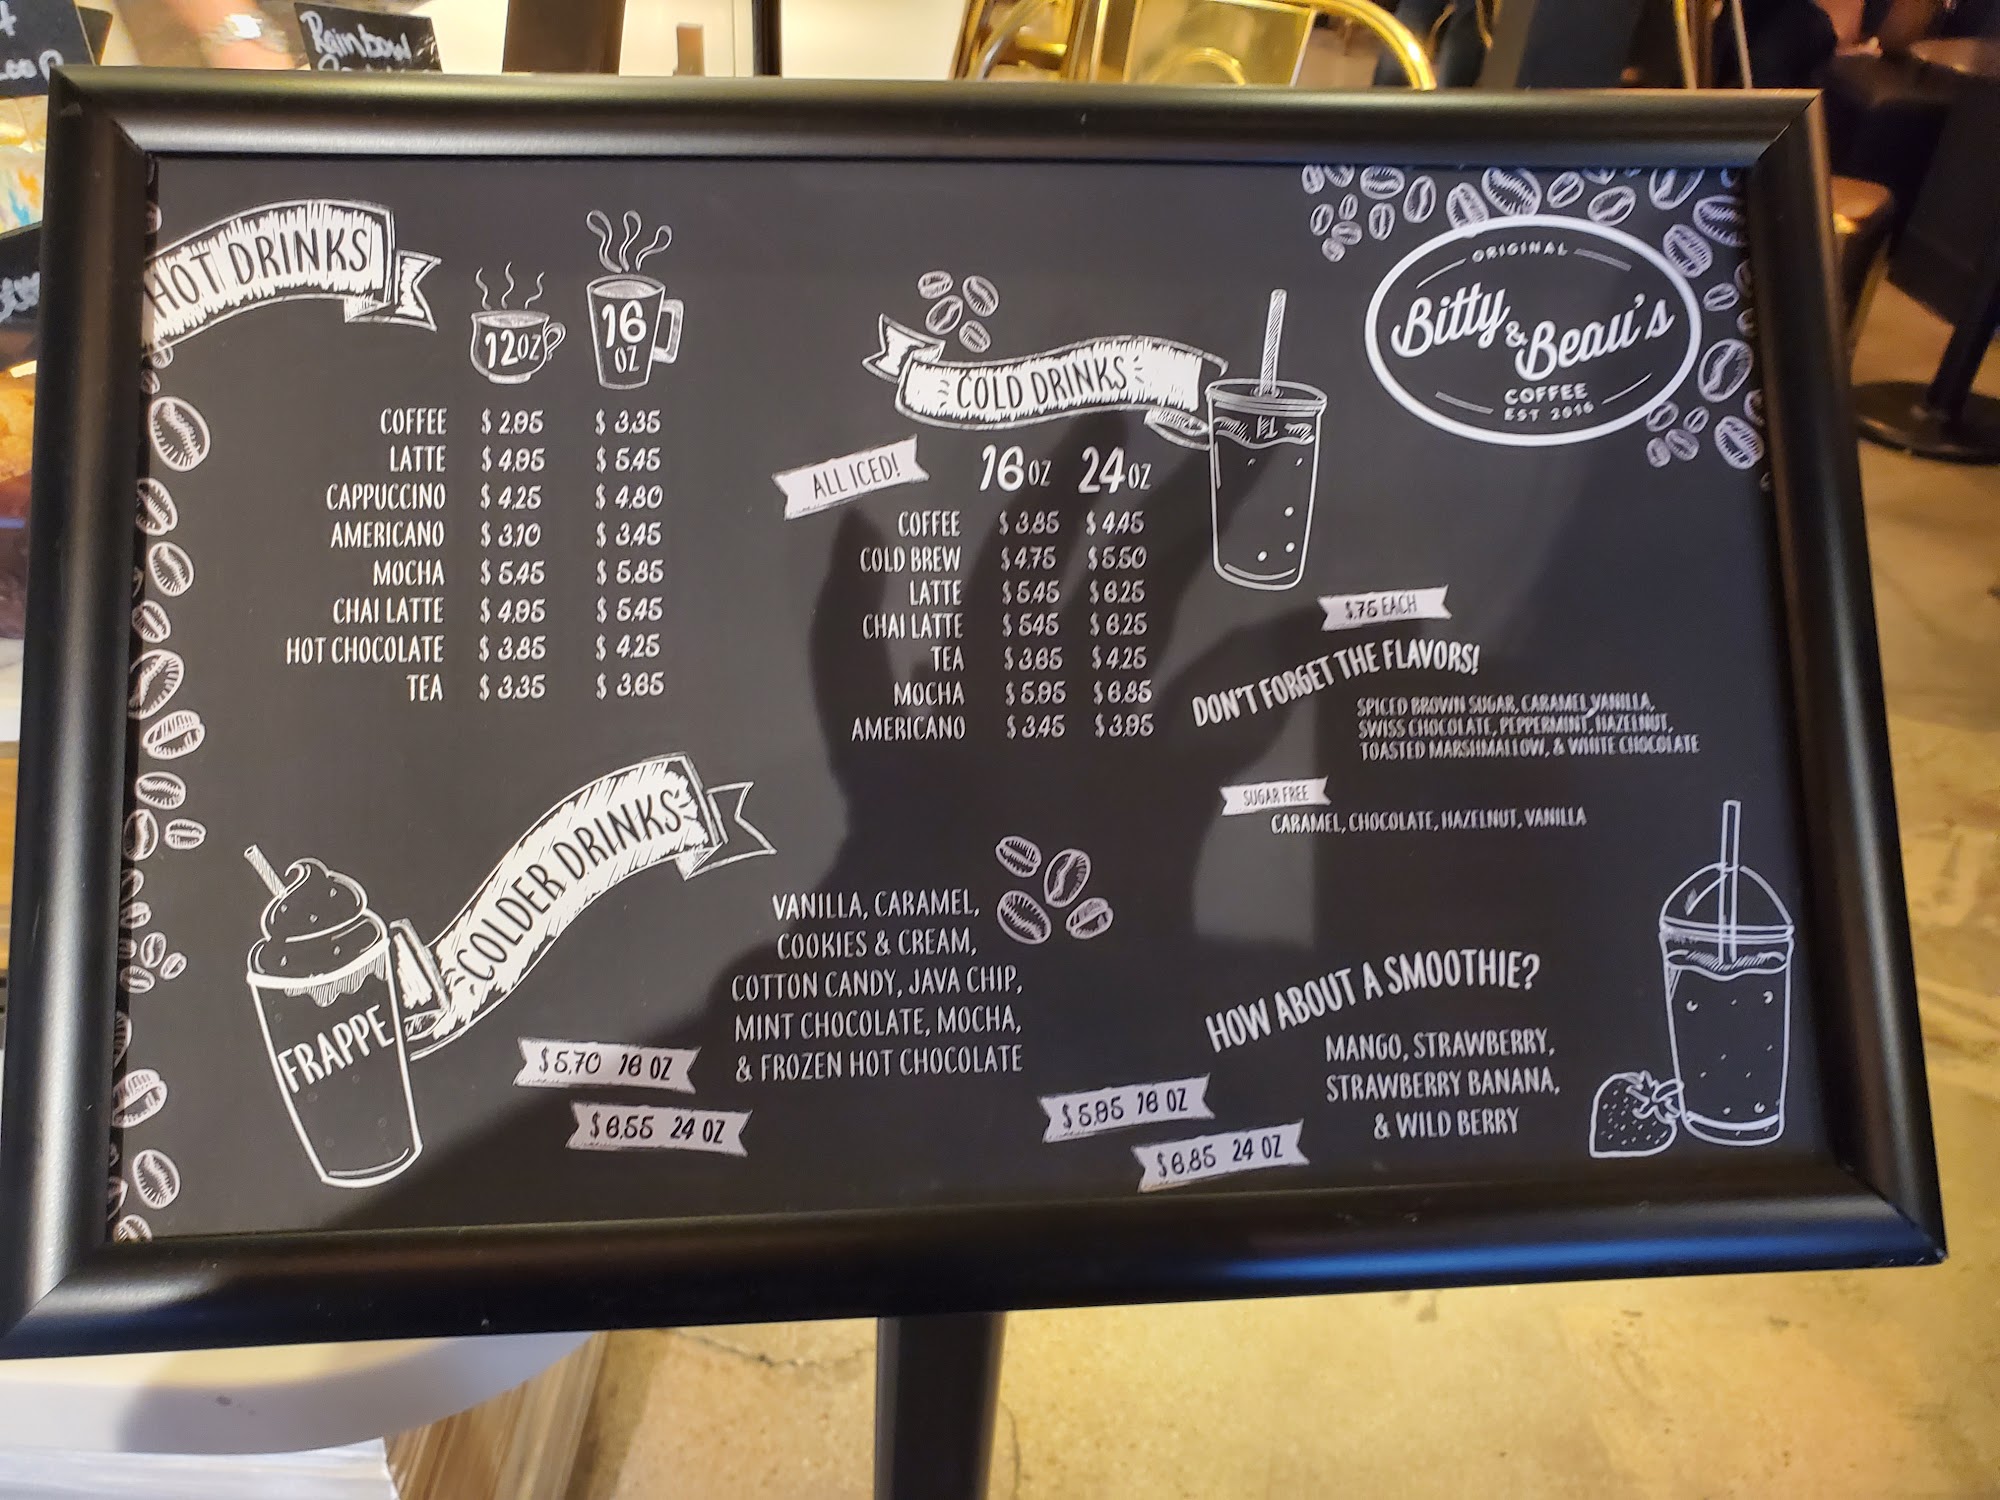 Rainbow
HOT DRINKS
12OZ
16 OZ
COFFEE $2.95 $3.35
LATTE $4.95 $5.45
CAPPUCCINO $4.25 $4.80
AMERICANO $3.10 $3.45
MOCHA $5.45 $5.85
CHAI LATTE $4.95 $5.45
HOT CHOCOLATE $3.85 $4.25
TEA $3.35 $3.65
COLD DRINKS
ALL ICED!
16OZ 24OZ
COFFEE $3.85 $4.45
COLD BREW $4.75 $5.50
LATTE $5.45 $6.25
CHAI LATTE $5.45 $6.25
TEA $3.65 $4.25
MOCHA $5.95 $6.85
AMERICANO $3.45 $3.95
ORIGINAL
Bitty & Beau's
COFFEE
EST 2016
$.75 EACH
DON'T FORGET THE FLAVORS!
SPICED BROWN SUGAR, CARAMEL, VANILLA,
SWISS CHOCOLATE, PEPPERMINT, HAZELNUT,
TOASTED MARSHMALLOW, & WHITE CHOCOLATE
SUGAR FREE
CARAMEL, CHOCOLATE, HAZELNUT, VANILLA
COLDER DRINKS
FRAPPE
VANILLA, CARAMEL,
COOKIES & CREAM,
COTTON CANDY, JAVA CHIP,
MINT CHOCOLATE, MOCHA,
& FROZEN HOT CHOCOLATE
$5.70 16 OZ
$6.55 24 OZ
HOW ABOUT A SMOOTHIE?
MANGO, STRAWBERRY,
STRAWBERRY BANANA,
& WILD BERRY
$5.95 16 OZ
$6.85 24 OZ